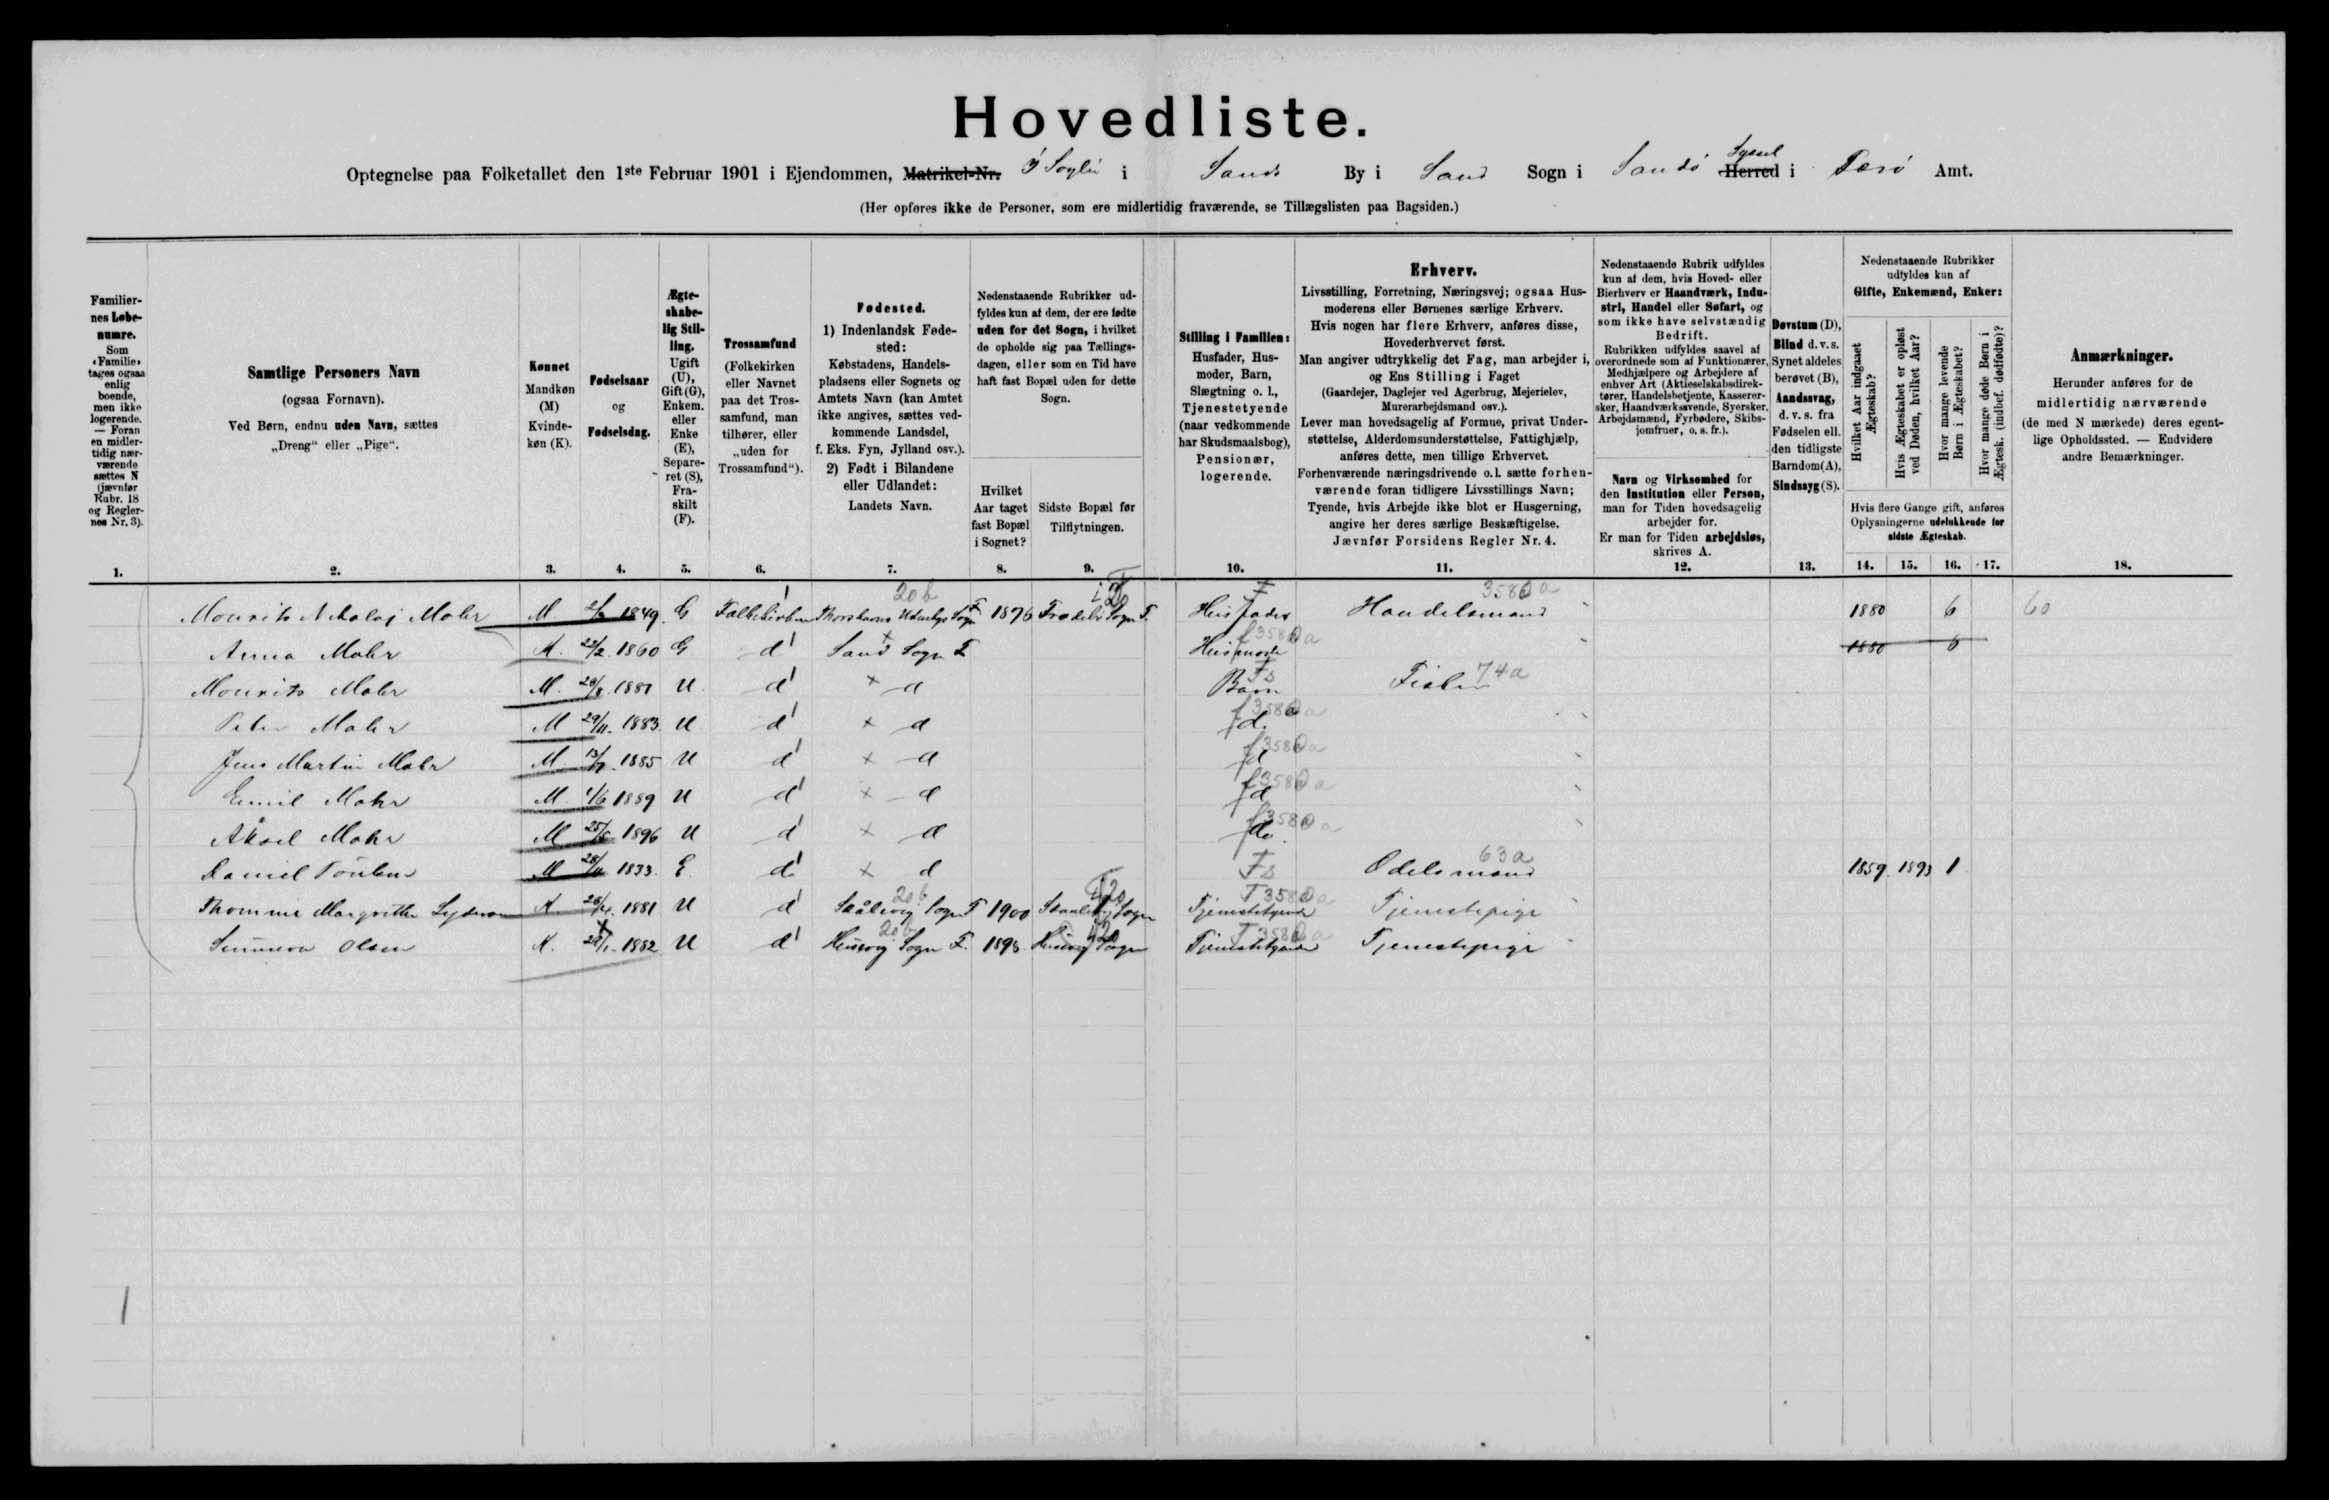 Hovedliste.
Optegnelse paa Folketallet den 1ste Februar 1901 i Ejendommen, Matrikel-Nr. i Sand By i Sand Sogn i Sandö Syssel Herred i Færö Amt.
(Her opføres ikke de Personer, som ere midlertidig fraværende, se Tillægslisten paa Bagsiden.)
Familiernes Løbenumre.
Som «Familie» tages ogsaa enlig boende, men ikke logerende. — Foran en midlertidig nærværende sættes N (jævnfør Rubr. 18 og Reglernes Nr. 3).
Samtlige Personers Navn
(ogsaa Fornavn).
Ved Børn, endnu uden Navn, sættes
„Dreng“ eller „Pige“.
Kønnet
Mandkøn (M)
Kvindekøn (K).
Fødselsaar
og
Fødselsdag.
Ægteskabelig Stilling.
Ugift (U), Gift (G), Enkem. eller Enke (E), Separeret (S), Fraskilt (F).
Trossamfund
(Folkekirken eller Navnet paa det Trossamfund, man tilhører, eller „uden for Trossamfund“).
Fødested.
1) Indenlandsk Fødested:
Købstadens, Handelspladsens eller Sognets og Amtets Navn (kan Amtet ikke angives, sættes vedkommende Landsdel, f. Eks. Fyn, Jylland osv.).
2) Født i Bilandene eller Udlandet:
Landets Navn.
Nedenstaaende Rubrikker udfyldes kun af dem, der ere fødte uden for det Sogn, i hvilket de opholde sig paa Tællingsdagen, eller som en Tid have haft fast Bopæl uden for dette Sogn.
Hvilket Aar taget fast Bopæl i Sognet?
Sidste Bopæl før Tilflytningen.
Stilling i Familien:
Husfader, Husmoder, Barn, Slægtning o. l., Tjenestetyende (naar vedkommende har Skudsmaalsbog), Pensionær, logerende.
Erhverv.
Livsstilling, Forretning, Næringsvej; ogsaa Husmoderens eller Børnenes særlige Erhverv.
Hvis nogen har flere Erhverv, anføres disse, Hovederhvervet først.
Man angiver udtrykkelig det Fag, man arbejder i, og Ens Stilling i Faget
(Gaardejer, Daglejer ved Agerbrug, Mejerielev, Murerarbejdsmand osv.).
Lever man hovedsagelig af Formue, privat Understøttelse, Alderdomsunderstøttelse, Fattighjælp, anføres dette, men tillige Erhvervet.
Forhenværende næringsdrivende o. l. sætte forhenværende foran tidligere Livsstillings Navn;
Tyende, hvis Arbejde ikke blot er Husgerning, angive her deres særlige Beskæftigelse.
Jævnfør Forsidens Regler Nr. 4.
Nedenstaaende Rubrik udfyldes kun af dem, hvis Hoved- eller Bierhverv er Haandværk, Industri, Handel eller Søfart, og som ikke have selvstændig Bedrift.
Rubrikken udfyldes saavel af overordnede som af Funktionærer, Medhjælpere og Arbejdere af enhver Art (Aktieselskabsdirektører, Handelsbetjente, Kasserersker, Haandværkssvende, Syersker, Arbejdsmænd, Fyrbødere, Skibsjomfruer, o. s. fr.).
Navn og Virksomhed for den Institution eller Person, man for Tiden hovedsagelig arbejder for.
Er man for Tiden arbejdsløs, skrives A.
Døvstum (D), Blind d. v. s. Synet aldeles berøvet (B), Aandssvag, d. v. s. fra Fødselen ell. den tidligste Barndom (A), Sindssyg (S).
Nedenstaaende Rubrikker udfyldes kun af
Gifte, Enkemænd, Enker:
Hvilket Aar indgaaet Ægteskab?
Hvis Ægteskabet er opløst ved Døden, hvilket Aar?
Hvor mange levende Børn i Ægteskabet?
Hvor mange døde Børn i Ægtesk. (indbef. dødfødte)?
Hvis flere Gange gift, anføres Oplysningerne udelukkende for sidste Ægteskab.
Anmærkninger.
Herunder anføres for de midlertidig nærværende (de med N mærkede) deres egentlige Opholdssted. — Endvidere andre Bemærkninger.
1. 2. 3. 4. 5. 6. 7. 8. 9. 10. 11. 12. 13. 14. 15. 16. 17. 18.
Mourits Nikolaj Mohr M 1849 G Folkekirken 20b Thorshavns Sogn 1876 Sogn F. Husfader Handelsmand 1880 6 60
Anna Mohr K. 22/2 1860 G d Sand Sogn F Husmoder 1880 6
Mourits Mohr M. 1881 U d d Barn Fs Fisker 74a
Peter Mohr M 29/11 1883 U d d d
Jens Martin Mohr M. 1885 U d d d
Emil Mohr M 1/6 1889 U d d d
Åksel Mohr M 1896 U d d do
Daniel M 1833 E d d Fs Odelsmand 63a 1859 1893 1
Thommine Margrethe K. 28/4 1881 U d 20b Skålevig Sogn F 1900 Skaalevig Sogn Tjenestetyende Tjenestepige
Sunneva Olsen K. 1882 U d 20b Husevig Sogn F. 1898 Husevig Sogn Tjenestetyende Tjenestepige
1